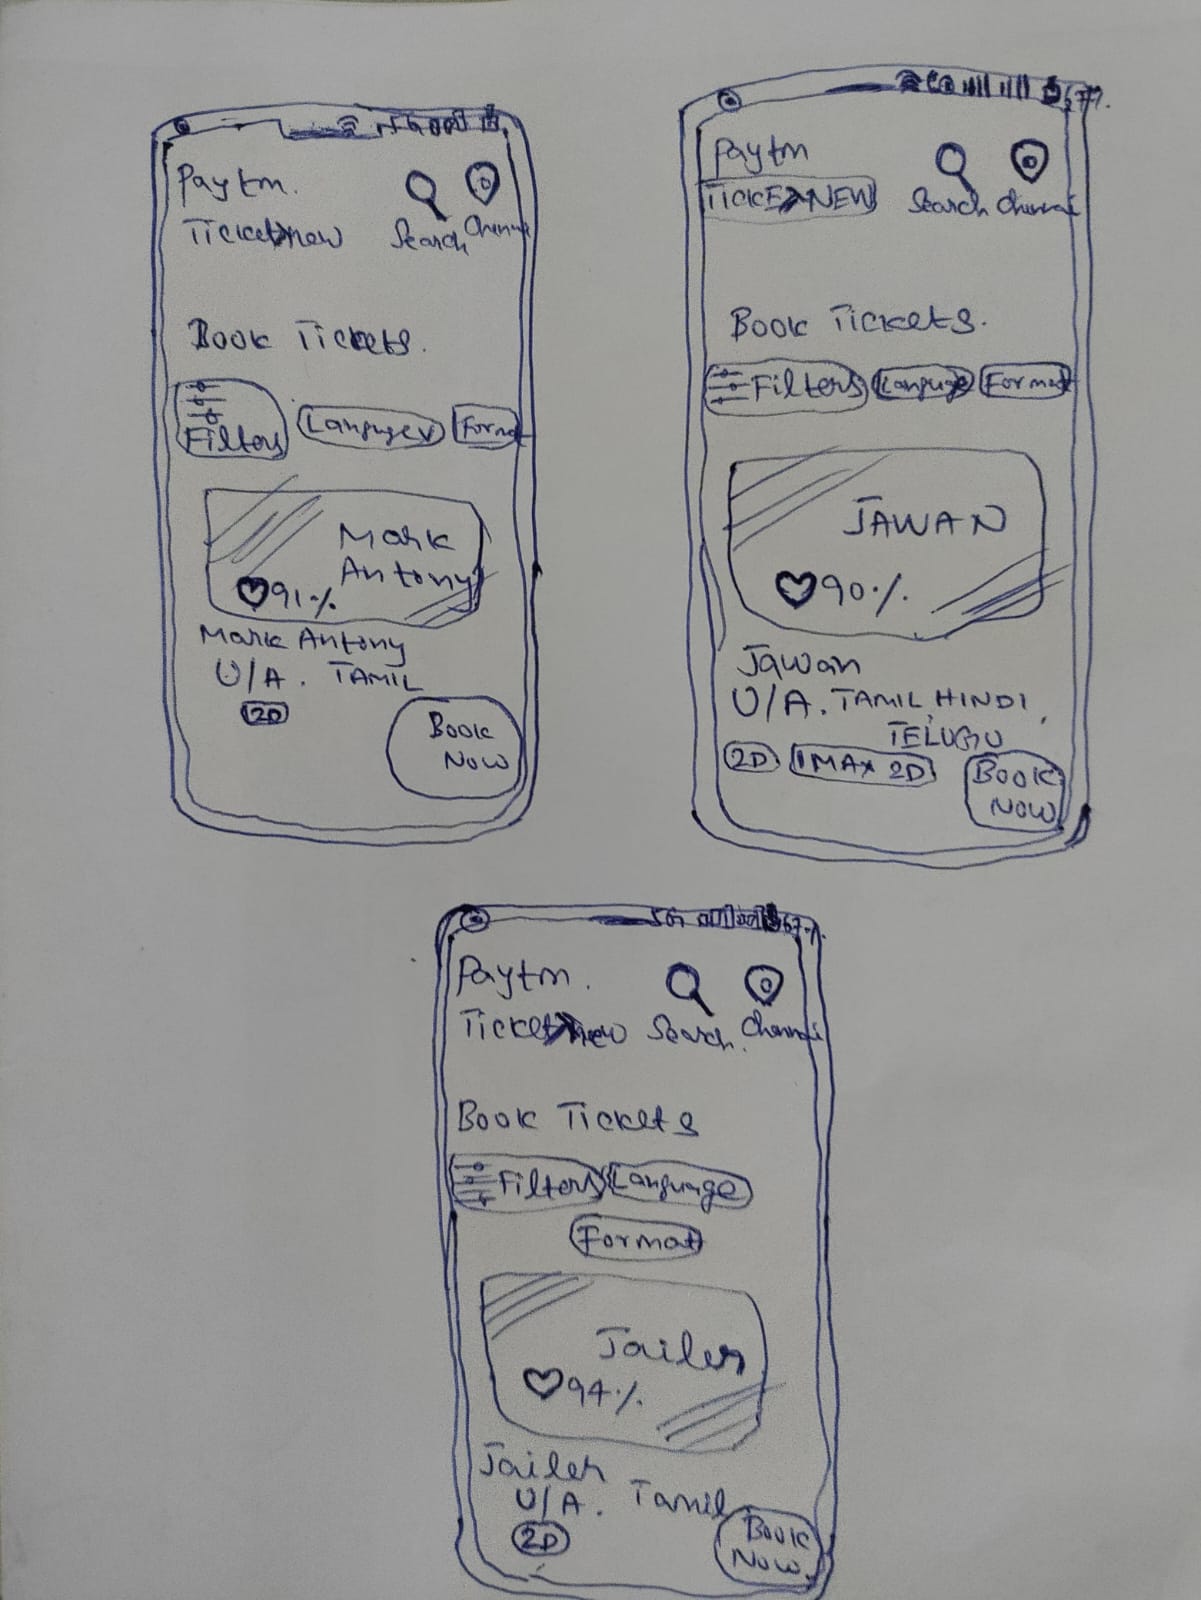 Paytm.
Ticketnew
Search Chennai
Book Tickets.
Filters
Language
Format
Mark
Antony
91%
Mark Antony
U/A. TAMIL
2D
Book
Now
67%.
Paytm
TICKETNEW
Search Chennai
Book Tickets.
Filters Languge Format
JAWAN
90%.
Jawan
U/A. TAMIL, HINDI,
TELUGU
2D IMAX 2D
Book
NOW
5G 67%.
Paytm.
Ticketnew Search. Chennai
Book Tickets
Filters Language
Format
Jailer
94%.
Jailer
U/A. Tamil
2D
Book
Now.